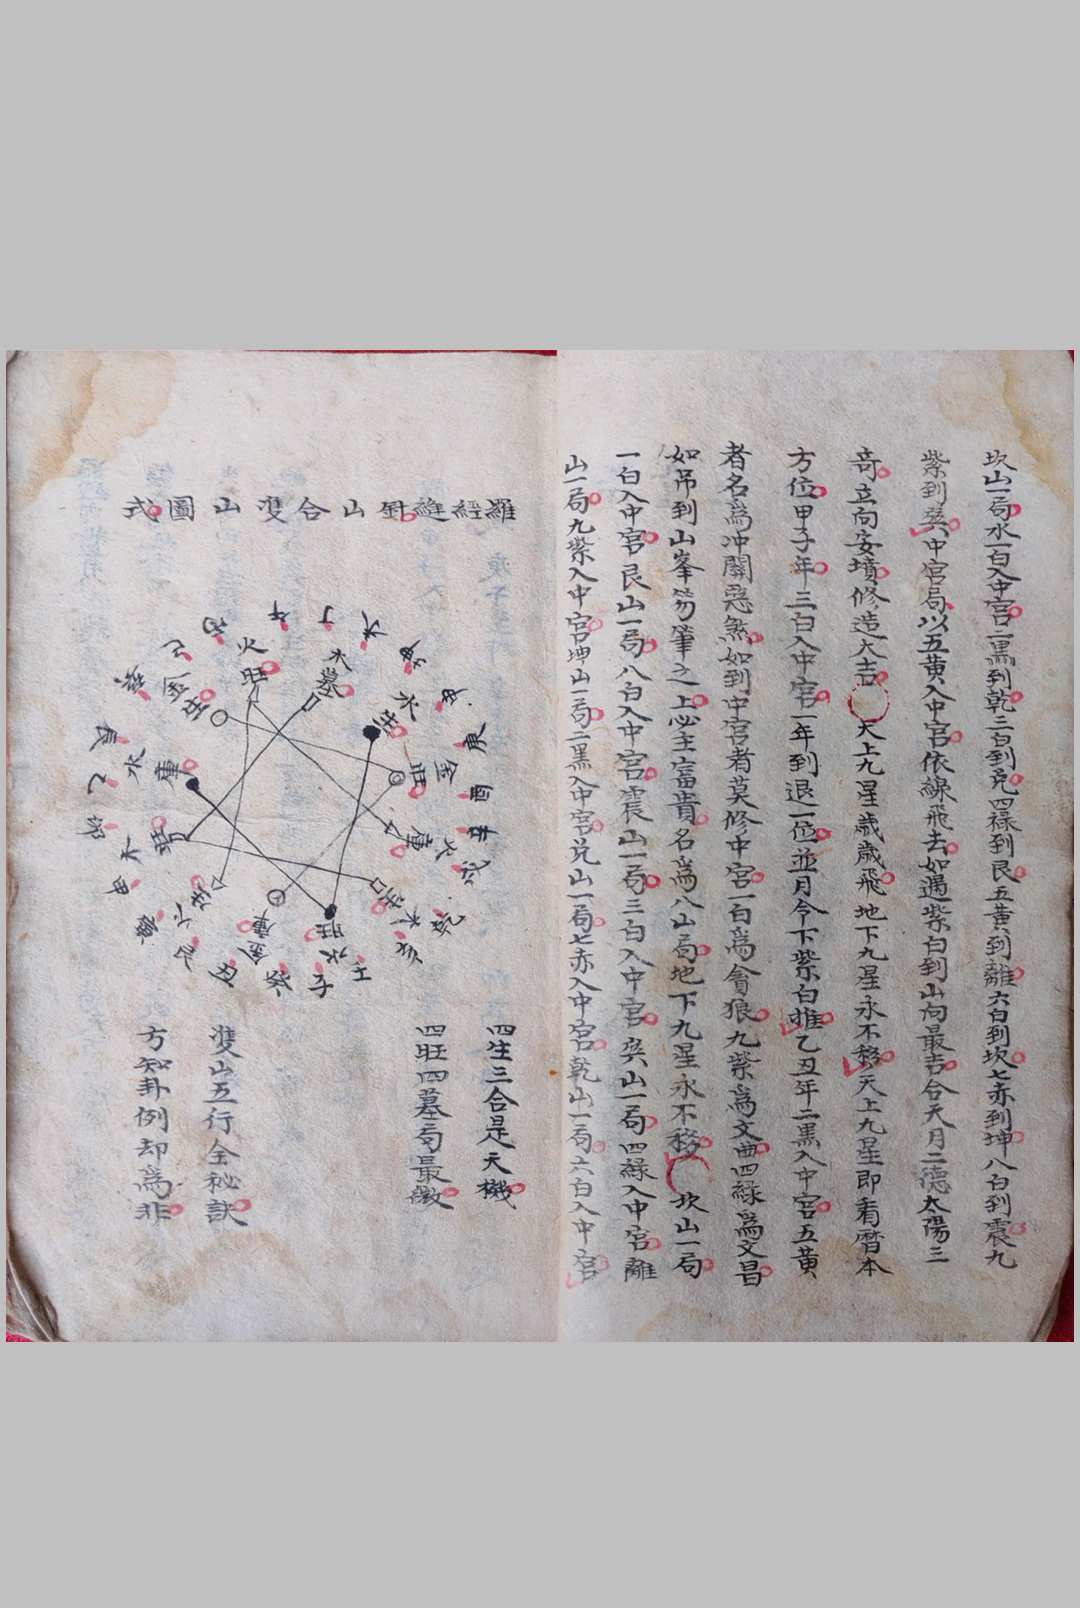 坎山一局水一白入中宮二黑到乾三白到兌四祿到艮五黃到離六白到坎七赤到坤八白到震九
紫到巽中宮局以五黃入中宮依線飛去如遇紫白到山向最吉合天月二德太陽三
奇立向安墳修造大吉 天上九星歲歲飛地下九星永不移天上九星即看曆本
方位甲子年三白入中宮一年到退一位並月令下紫白推乙丑年二黑入中宮五黃
者名為冲關惡煞如到中宮者莫修中宮一白為貪狼九紫為文曲四綠為文昌
如吊到山峯笏筆之上必主富貴名為八山局地下九星永不移 坎山一局
一白入中宮艮山一局八白入中宮震山一局三白入中宮巽山一局四綠入中宮離
山一局九紫入中宮坤山一局二黑入中宮兌山一局七赤入中宮乾山一局六白入中宮
羅經縫針山合雙山圖式
丙午丁未坤申庚酉辛戌乾亥壬子癸丑艮寅甲卯乙辰巽巳
火旺
木墓
水生
金旺
火庫
木生
水旺
金庫
火生
木旺
水庫
金生
四生三合是天機
四旺四墓局最微
雙山五行全秘訣
方知卦例却為非